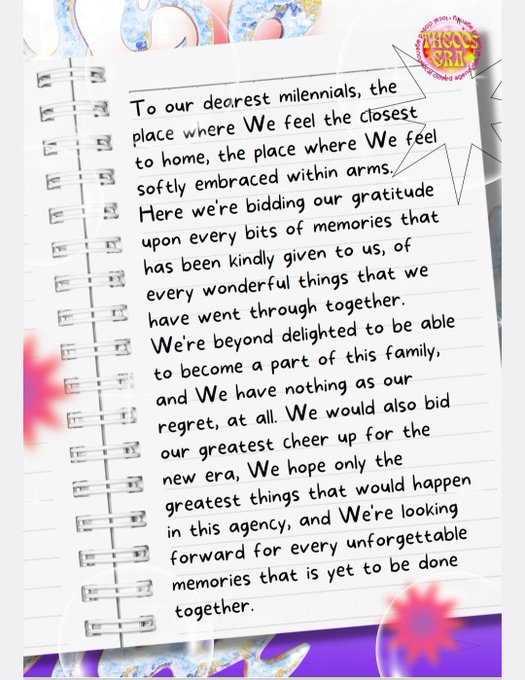 THEOOS
ERA
To our dearest milennials, the
place where We feel the closest
to home, the place where We feel
softly embraced within arms.
Here we're bidding our gratitude
upon every bits of memories that
has been kindly given to us, of
every wonderful things that we
have went through together.
We're beyond delighted to be able
to become a part of this family,
and We have nothing as our
regret, at all. We would also bid
our greatest cheer up for the
new era, We hope only the
greatest things that would happen
in this agency, and We're looking
forward for every unforgettable
memories that is yet to be done
together.